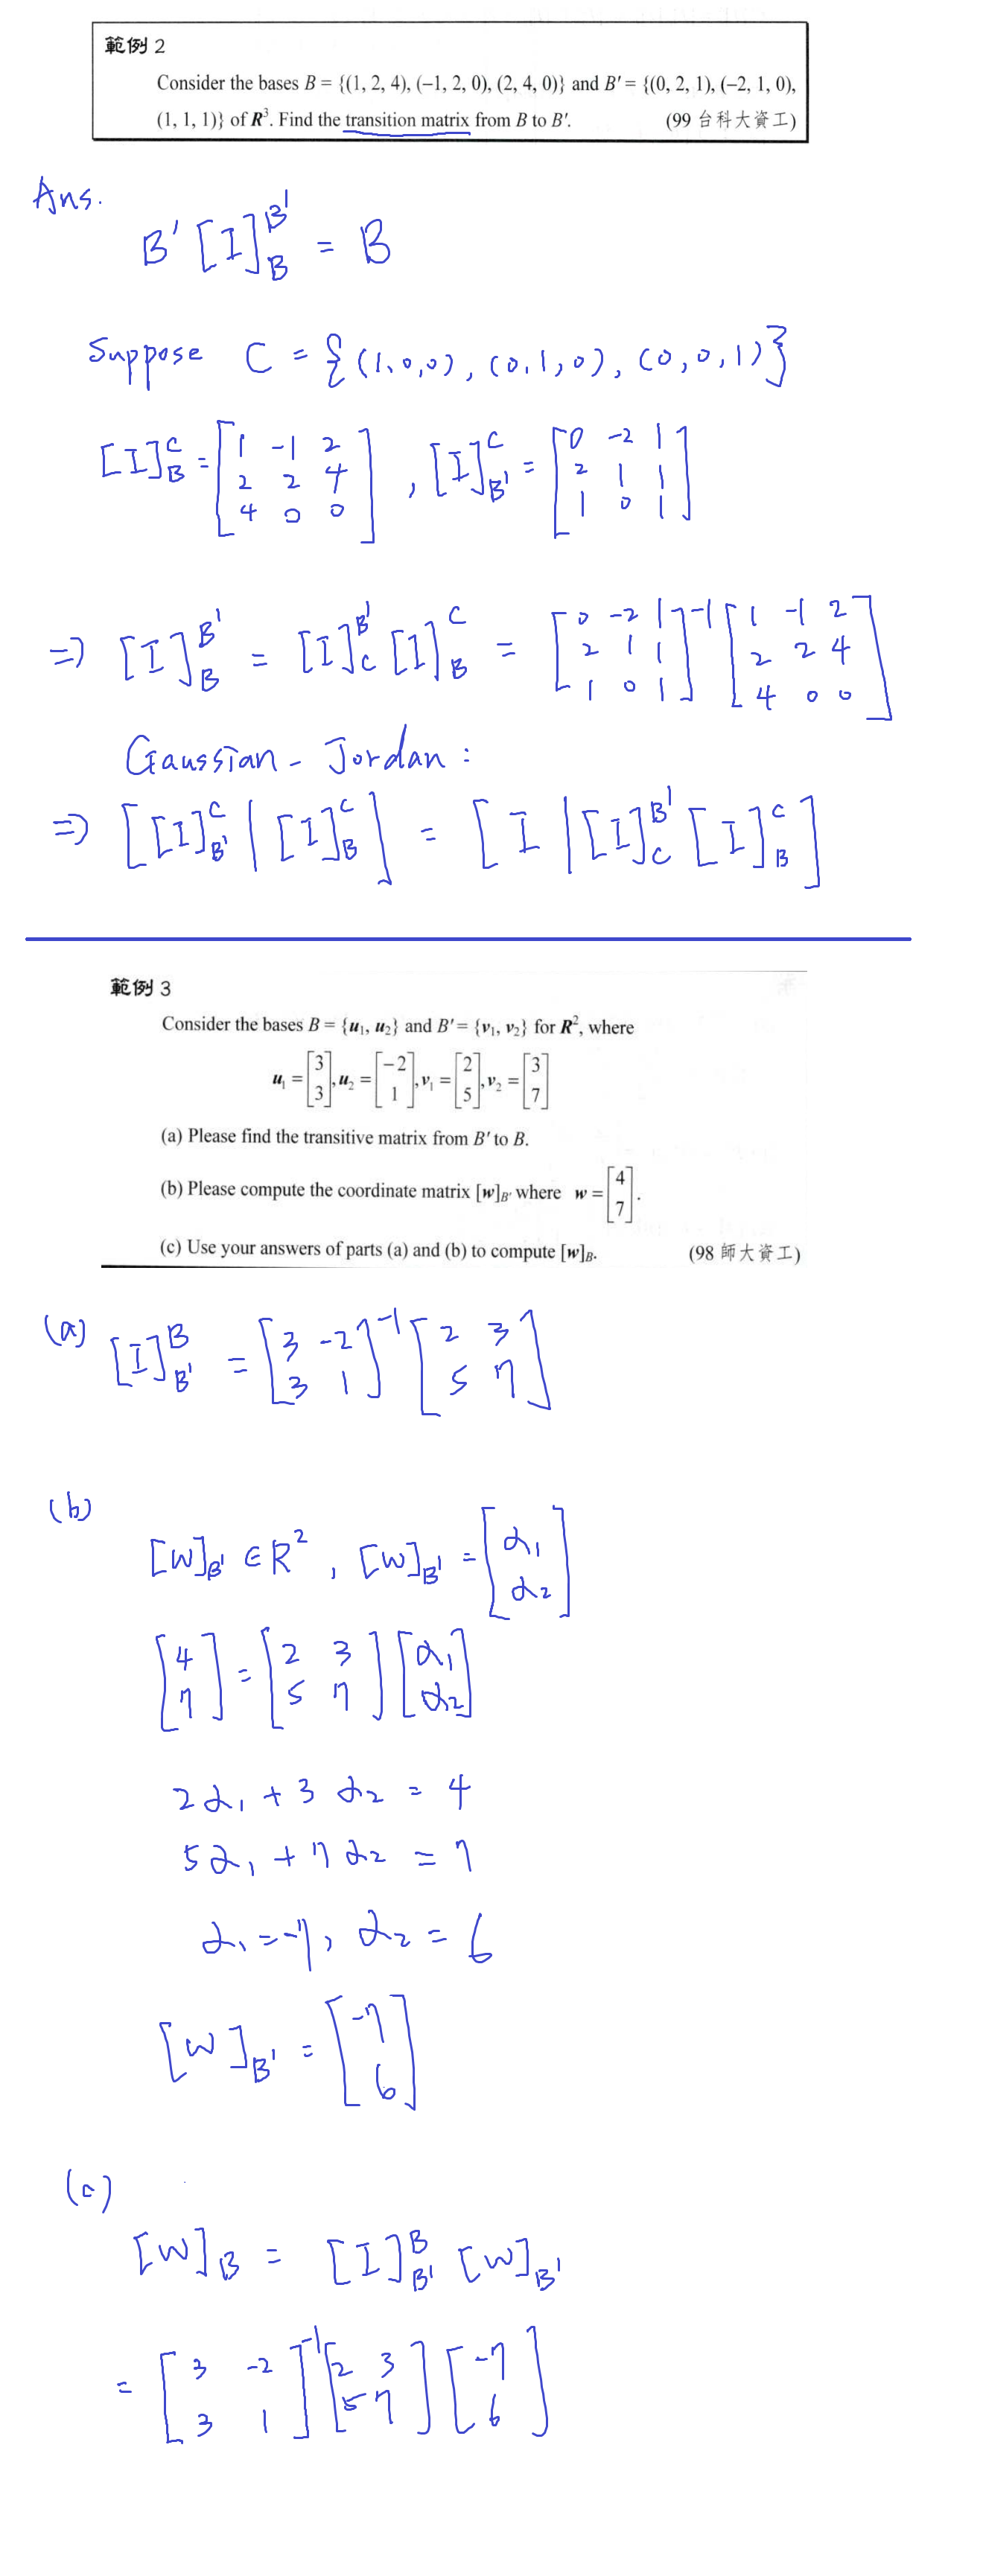 範例 2
Consider the bases B = {(1, 2, 4), (−1, 2, 0), (2, 4, 0)} and B′ = {(0, 2, 1), (−2, 1, 0),
(1, 1, 1)} of R³. Find the transition matrix from B to B′. (99 台科大資工)
Ans.
B' [I]_B^B' = B
Suppose C = {(1,0,0), (0,1,0), (0,0,1)}
[I]_B^C = [1 -1 2; 2 2 4; 4 0 0], [I]_B'^C = [0 -2 1; 2 1 1; 1 0 1]
=> [I]_B^B' = [I]_C^B' [I]_B^C = [0 -2 1; 2 1 1; 1 0 1]^-1 [1 -1 2; 2 2 4; 4 0 0]
Gaussian - Jordan :
=> [[I]_B'^C | [I]_B^C] = [I | [I]_C^B' [I]_B^C]
範例 3
Consider the bases B = {u₁, u₂} and B′ = {v₁, v₂} for R², where
u₁ = [3; 3], u₂ = [−2; 1], v₁ = [2; 5], v₂ = [3; 7]
(a) Please find the transitive matrix from B′ to B.
(b) Please compute the coordinate matrix [w]_B′ where w = [4; 7].
(c) Use your answers of parts (a) and (b) to compute [w]_B. (98 師大資工)
(a) [I]_B'^B = [3 -2; 3 1]^-1 [2 3; 5 7]
(b)
[W]_B' ∈ R², [W]_B' = [α₁; α₂]
[4; 7] = [2 3; 5 7] [α₁; α₂]
2α₁ + 3α₂ = 4
5α₁ + 7α₂ = 7
α₁ = -7, α₂ = 6
[W]_B' = [-7; 6]
(c)
[W]_B = [I]_B'^B [W]_B'
= [3 -2; 3 1]^-1 [2 3; 5 7] [-7; 6]